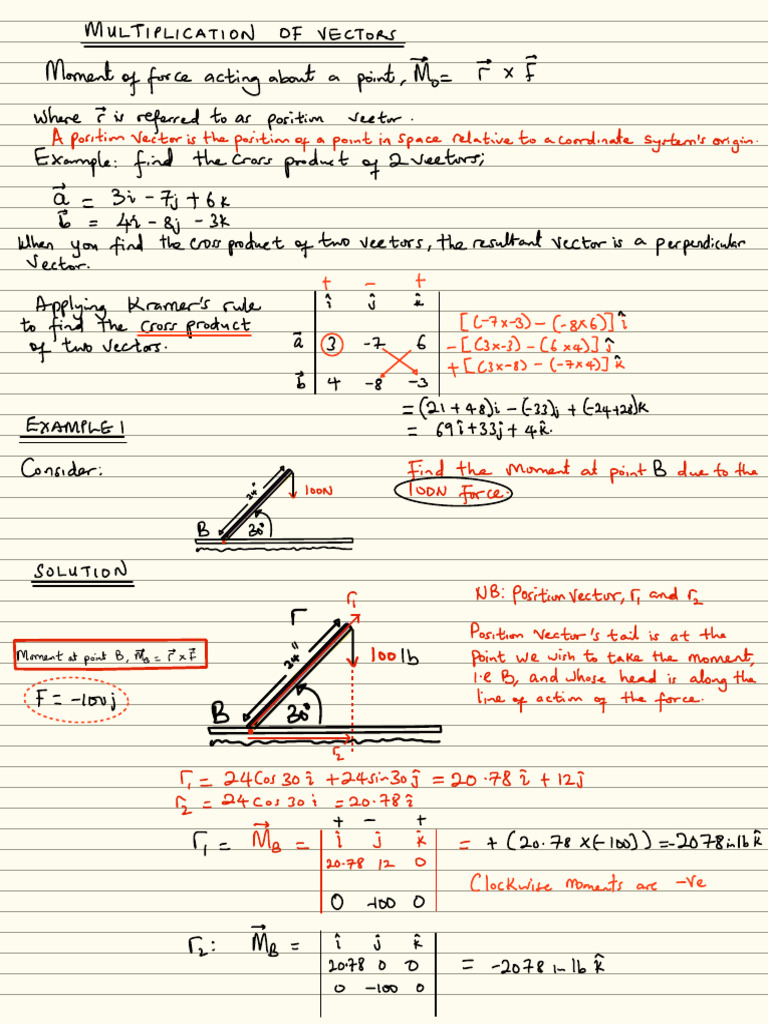 MULTIPLICATION OF VECTORS
Moment of force acting about a point, M⃗₀ = r⃗ × F⃗
where r⃗ is referred to as position vector.
A position vector is the position of a point in space relative to a coordinate system's origin.
Example: find the cross product of 2 vectors;
a⃗ = 3i - 7j + 6k
b⃗ = 4i - 8j - 3k
When you find the cross product of two vectors, the resultant vector is a perpendicular
vector.
Applying Kramer's rule
to find the cross product
of two vectors.
+ - +
î ĵ k̂
a⃗ 3 -7 6
b⃗ 4 -8 -3
[(-7×-3) - (-8×6)] î
-[(3×-3) - (6×4)] ĵ
+[(3×-8) - (-7×4)] k̂
= (21+48)i - (-33)j + (-24+28)k
= 69î + 33ĵ + 4k̂.
EXAMPLE 1
Consider:
24"
100N
B 30°
Find the moment at point B due to the
100N force.
SOLUTION
NB: Position vector, r₁ and r₂
Position vector's tail is at the
point we wish to take the moment,
i.e B, and whose head is along the
line of action of the force.
Moment at point B, M⃗B = r⃗ × F⃗
F = -100j
r
r₁
24"
100 lb
B 30°
r₂
r₁ = 24cos30 î + 24sin30ĵ = 20.78 î + 12ĵ
r₂ = 24cos30 î = 20.78 î
+ - +
r₁ = M⃗B = î ĵ k̂ = + (20.78 × (-100)) = -2078 in lb k̂
20.78 12 0
0 -100 0
Clockwise moments are -ve
r₂: M⃗B = î ĵ k̂
20.78 0 0
0 -100 0
= -2078 in-lb k̂